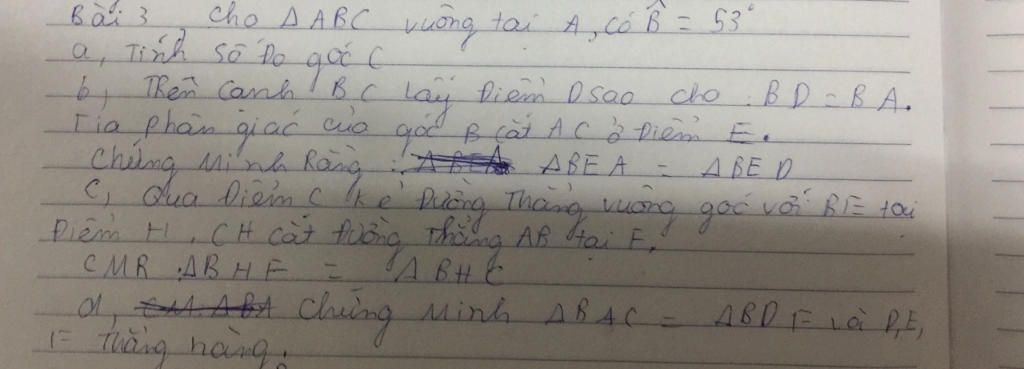 Bài 3, Cho Δ ABC vuông tại A, có B̂ = 53°
a, Tính số đo góc C
b, Trên cạnh BC lấy điểm D sao cho : BD = BA.
Tia phân giác của góc B cắt AC ở điểm E.
Chứng minh Rằng : ΔBEA = ΔBED
C, Qua điểm C kẻ đường thẳng vuông góc với BE tại
điểm H. CH cắt đường thẳng AB tại F.
CMR : ΔBHF = ΔBHC
d, Chứng minh ΔBAC = ΔBDF và D,E,
F thẳng hàng.